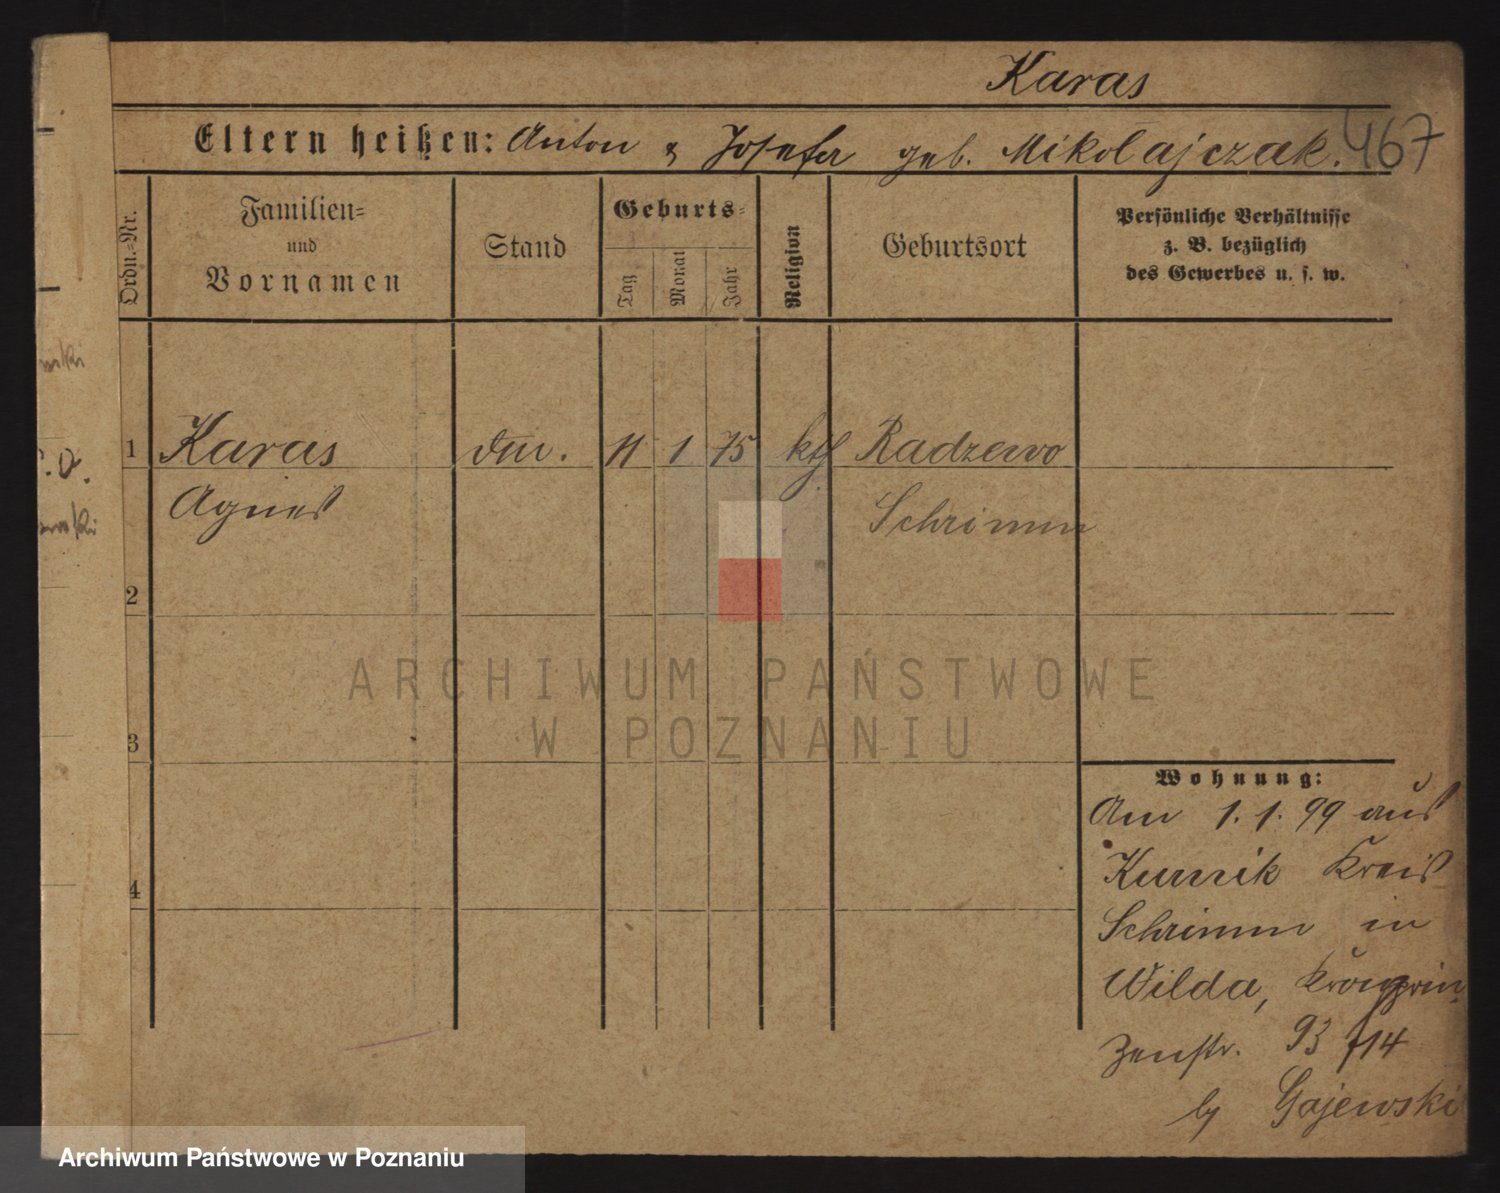 Karas
467
Eltern heißen: Anton & Josefa geb. Mikolajczak.
Ordn.=Nr.
Familien=
und
Vornamen
Stand
Geburts=
Tag
Monat
Jahr
Religion
Geburtsort
Persönliche Verhältnisse
z. B. bezüglich
des Gewerbes u. s. w.
1 Karas 11 1 75 kth Radzewo
Agnes Schrimm
2
3
4
Wohnung:
Am 1. 1. 99 aus
Kurnik Kreis
Schrimm in
Wilda, Kronprin
zenstr. 93 f14
by Gajewski
ARCHIWUM PAŃSTWOWE
W POZNANIU
Archiwum Państwowe w Poznaniu